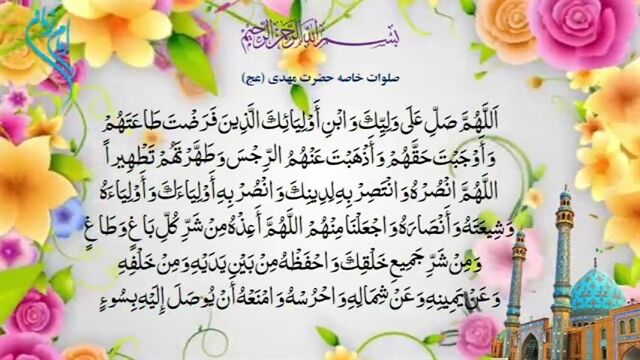 بسم الله الرحمن الرحیم
صلوات خاصه حضرت مهدی (عج)
اَللّهُمَّ صَلِّ عَلَى وَلِيِّكَ وَابْنِ أَوْلِيَائِكَ الَّذِينَ فَرَضْتَ طَاعَتَهُمْ
وَأَوْجَبْتَ حَقَّهُمْ وَأَذْهَبْتَ عَنْهُمُ الرِّجْسَ وَطَهَّرْتَهُمْ تَطْهِيراً
اللَّهُمَّ انْصُرْهُ وَانْتَصِرْ بِهِ لِدِينِكَ وَانْصُرْ بِهِ أَوْلِيَاءَكَ وَأَوْلِيَاءَهُ
وَشِيعَتَهُ وَأَنْصَارَهُ وَاجْعَلْنَا مِنْهُمْ اللَّهُمَّ أَعِذْهُ مِنْ شَرِّ كُلِّ بَاغٍ وَطَاغٍ
وَمِنْ شَرِّ جَمِيعِ خَلْقِكَ وَاحْفَظْهُ مِنْ بَيْنِ يَدَيْهِ وَمِنْ خَلْفِهِ
وَعَنْ يَمِينِهِ وَعَنْ شِمَالِهِ وَاحْرُسْهُ وَامْنَعْهُ أَنْ يُوصَلَ إِلَيْهِ بِسُوءٍ